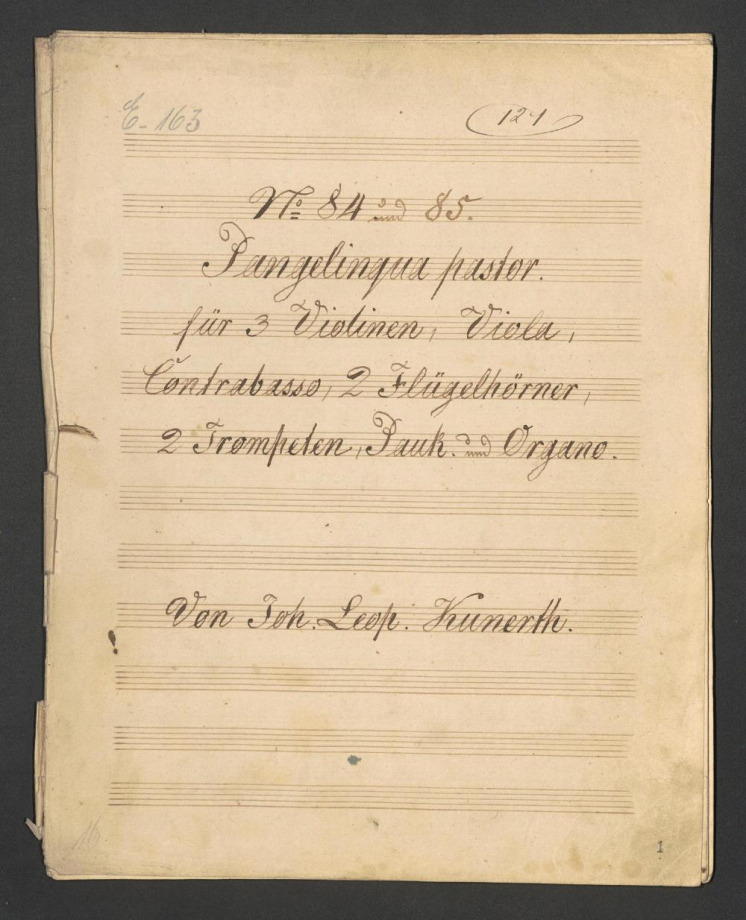 E-163
121
No 84 und 85.
Pangelingua pastor.
für 3 Violinen, Viola,
Contrabasso, 2 Flügelhörner,
2 Trompeten, Pauk. und Organo.
Von Joh. Leop. Kunerth.
16
1